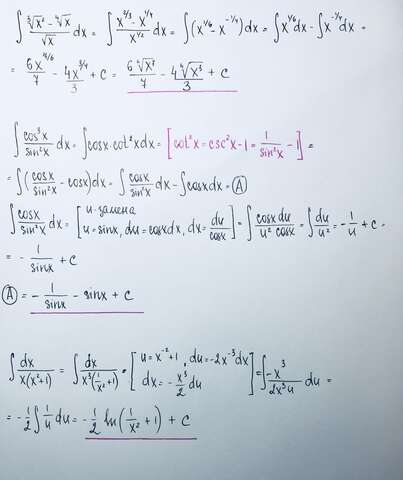 ∫ (∛x² - ∜x)/√x dx = ∫ (x^(2/3) - x^(1/4))/x^(1/2) dx = ∫(x^(1/6) - x^(-1/4))dx = ∫x^(1/6)dx - ∫x^(-1/4)dx =
= 6x^(7/6)/7 - 4x^(3/4)/3 + C = 6 ⁶√x⁷/7 - 4 ∜x³/3 + C
∫ cos³x/sin²x dx = ∫cosx·cot²x dx = [cot²x = csc²x - 1 = 1/sin²x - 1] =
= ∫(cosx/sin²x - cosx)dx = ∫ cosx/sin²x dx - ∫cosx dx = Ⓐ
∫ cosx/sin²x dx = [u-замена u = sinx, du = cosx dx, dx = du/cosx] = ∫ cosx du/(u² cosx) = ∫ du/u² = -1/u + C =
= - 1/sinx + C
Ⓐ = - 1/sinx - sinx + C
∫ dx/(x(x²+1)) = ∫ dx/(x³(1/x²+1)) = [u = x⁻²+1, du = -2x⁻³dx dx = - x³/2 du] = ∫ -x³/(2x³u) du =
= -1/2 ∫ 1/u du = -1/2 ln(1/x² + 1) + C